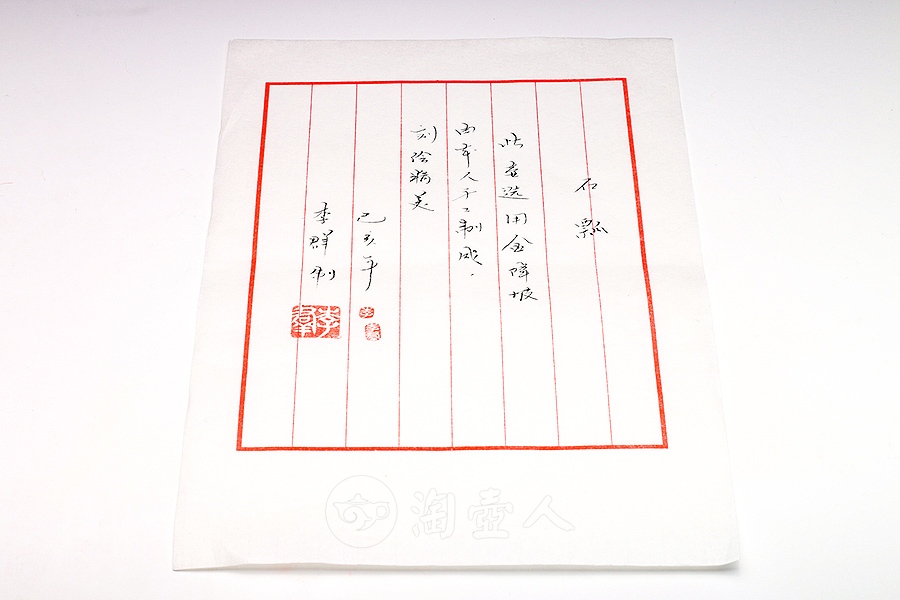 石瓢
此壶选用金降坡
由本人手工制成.
刻绘精美
己亥年
李群制
李群
淘壶人